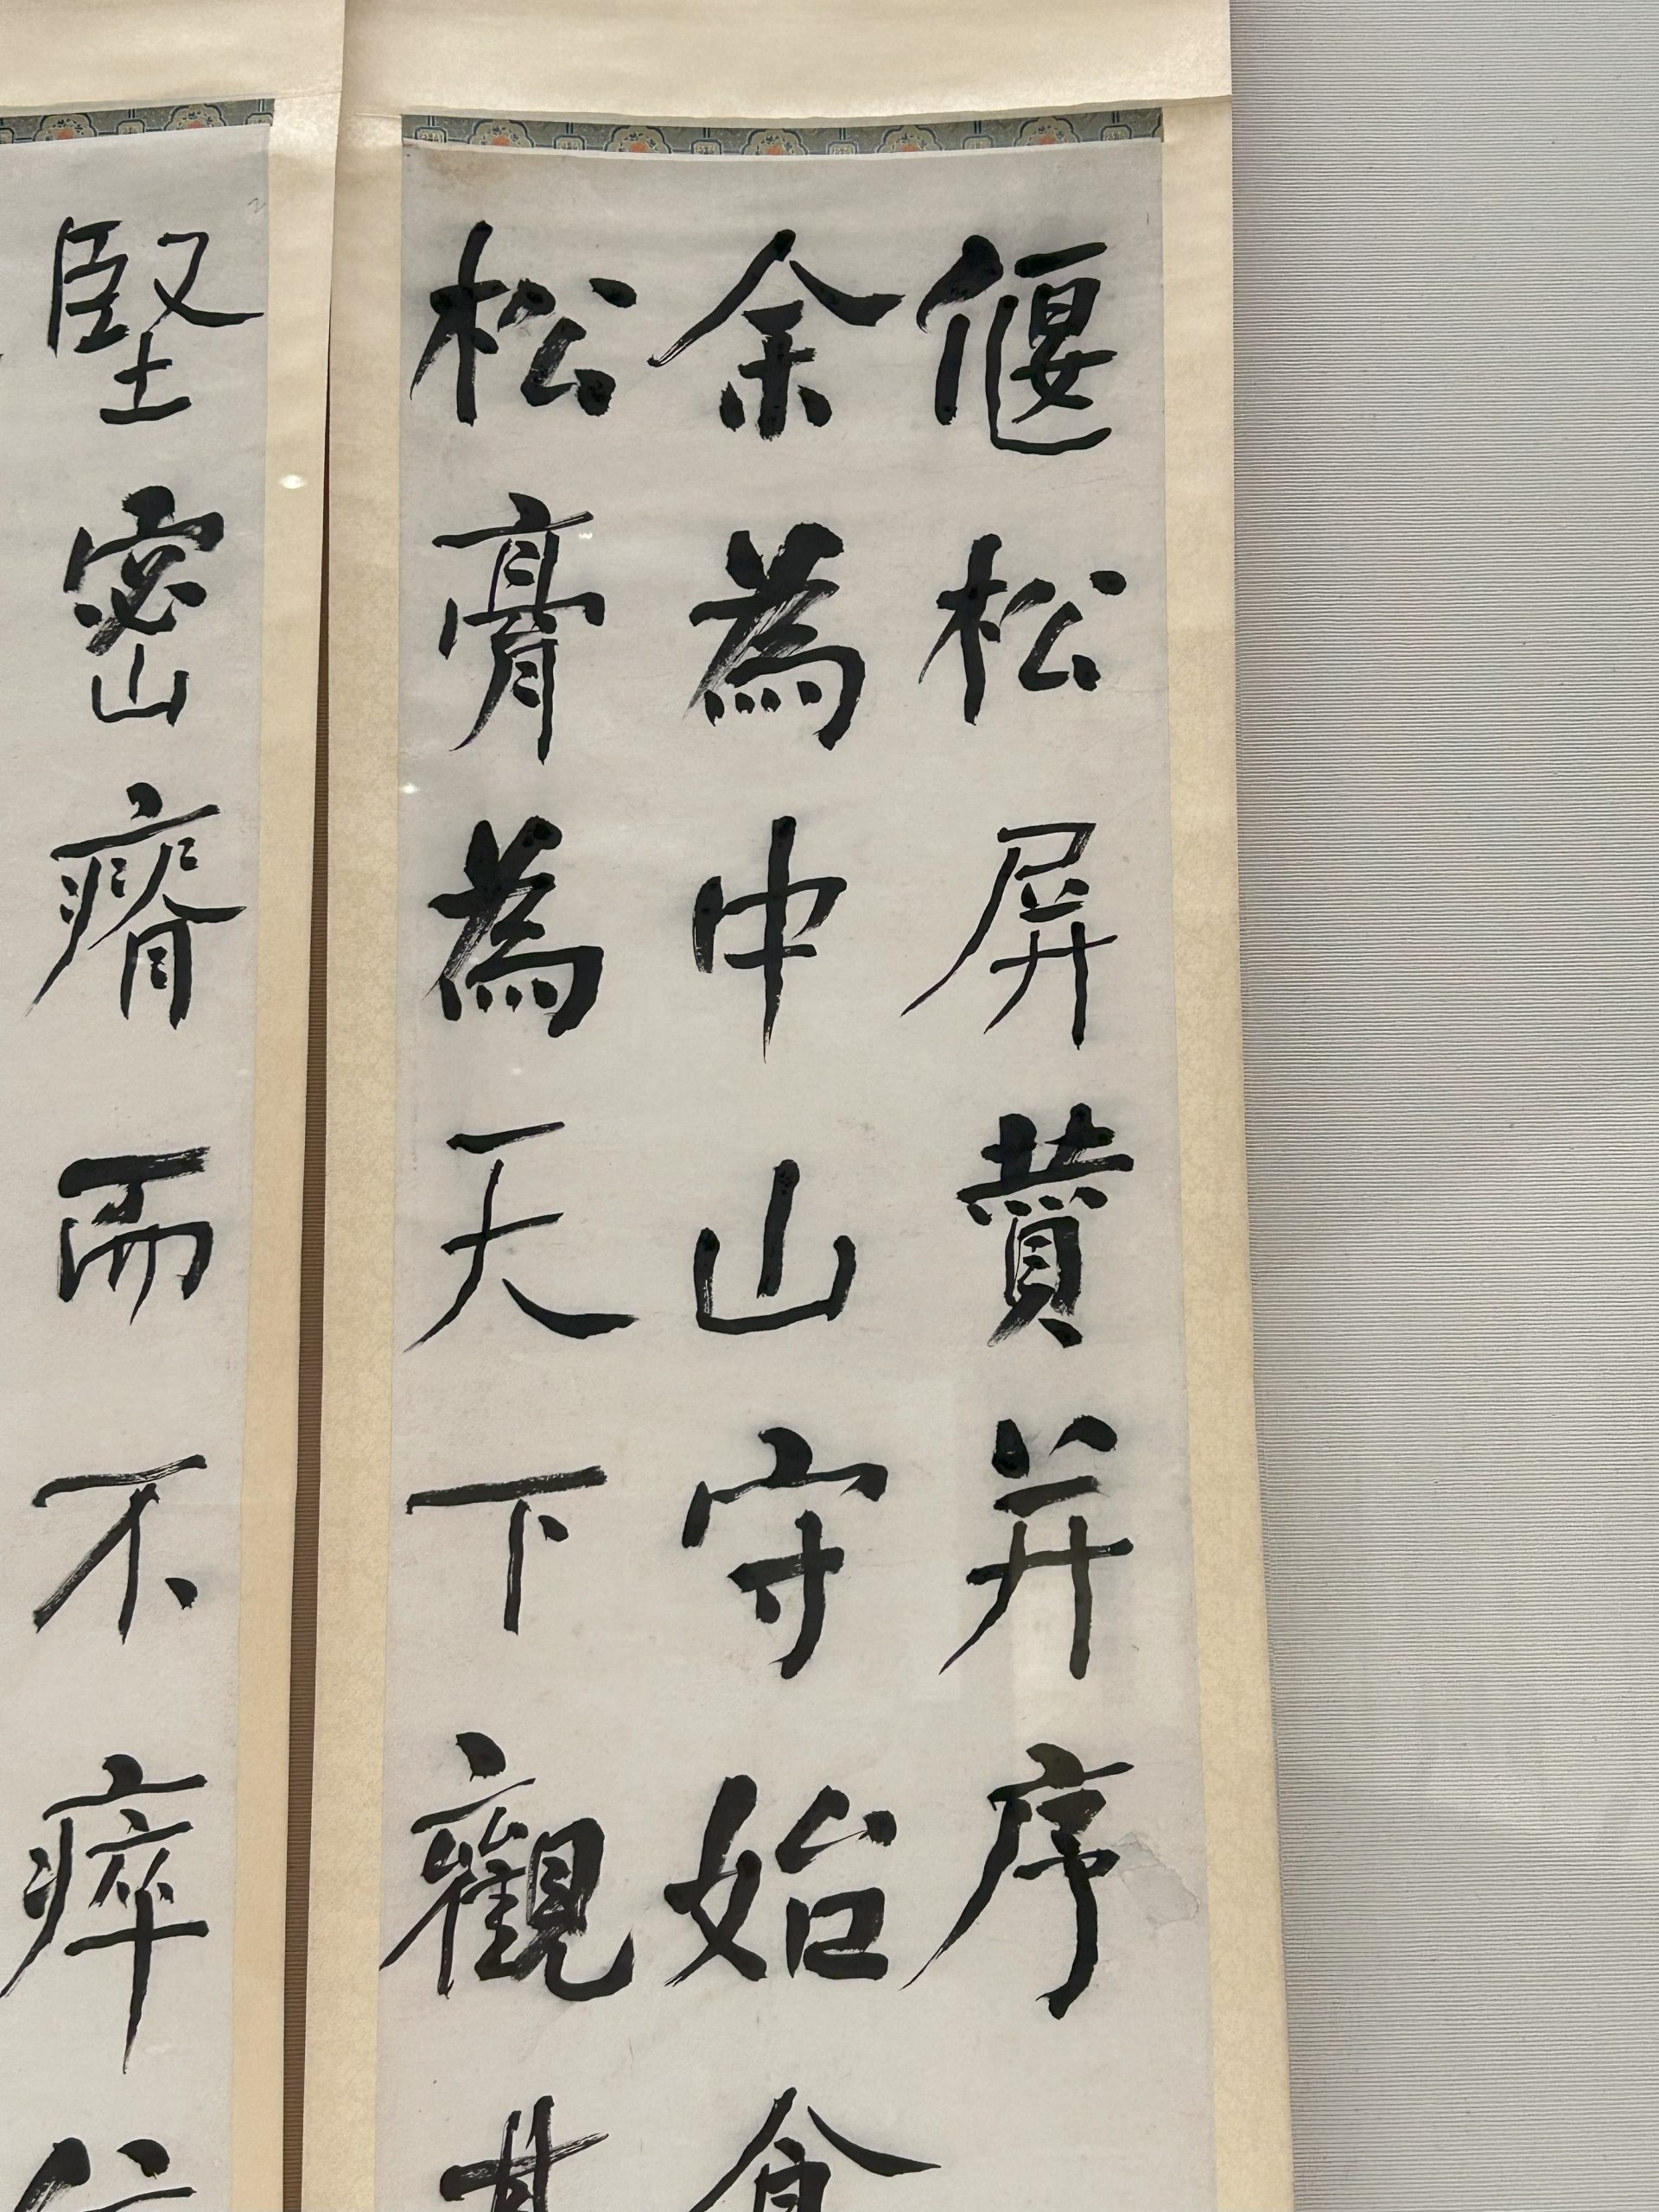 偃松屏賛并序
余為中山守始食
松膏為天下觀其
堅密瘠而不瘁